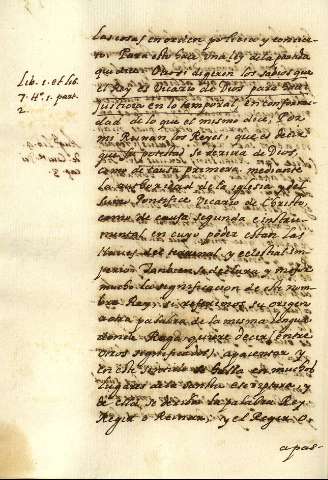 las cosas en orden poetico y concier-
to. Para esto hace una ley de la partida
que dice. Otrosi dixeron los sabios que
el Rey es Vicario de Dios para hacer
justicia en lo temporal, en conformi-
dad de lo que el mismo dice, Por
mi Reynan los Reyes, que es decir
que su potestad se deriva de Dios
como de causa primera mediante
la autoridad de la iglesia y del
Sumo Pontifice Vicario de Christo,
como de causa segunda e instru-
mental en cuyo poder estan las
llaves del terrenal, y celestial im-
perio. Tambien se declara, y mejor
mucho la significacion de este nom-
bre Rey, si referimos su origen
a otra palabra de la misma lengua
donde Raga quiere decir (entre
otros significados) apacentar y
en este sentido se halla en muchos
lugares de la santa escriptura, y
de ella se deriba la palabra Rey
Regir o Reynar, y el Regir o
apas-
Lib. 1. et lib.
7. tt. 1. part.
2.